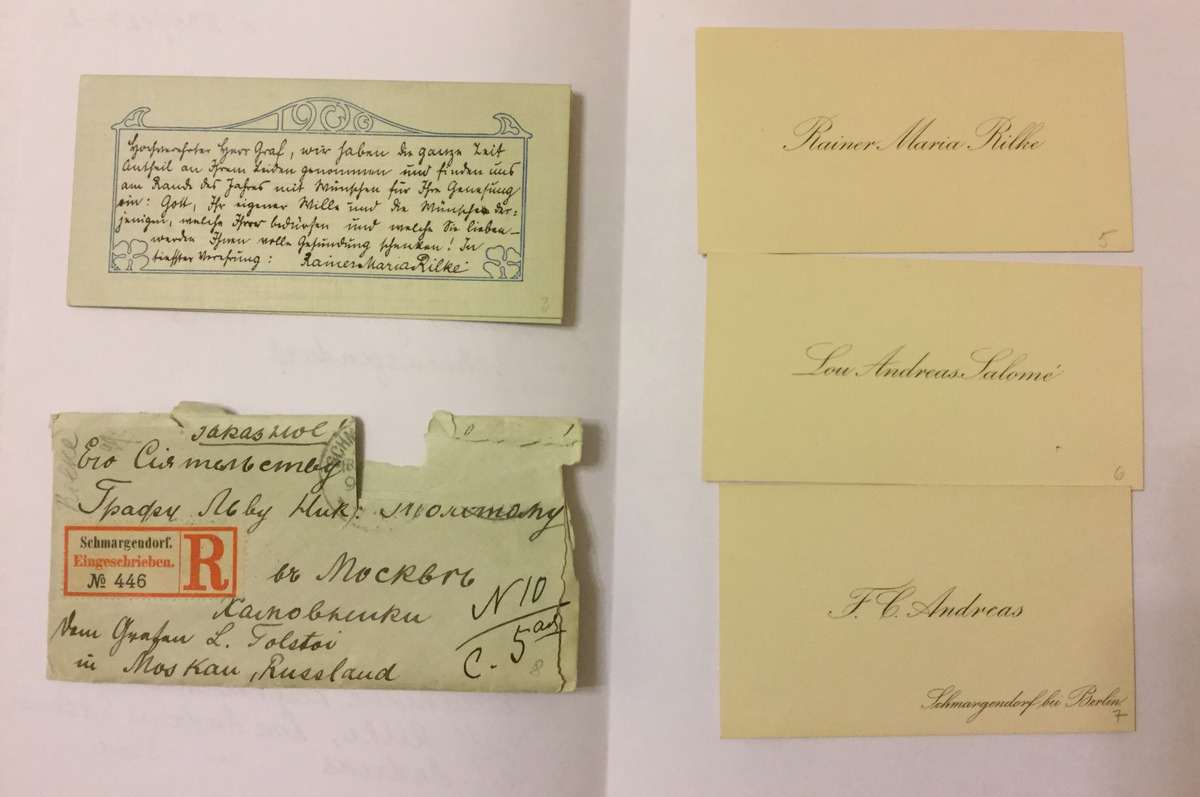 1900
Hochverehrter Herr Graf, wir haben die ganze Zeit
Antheil an Ihrem Leiden genommen und finden uns
am Rande des Jahres mit Wünschen für Ihre Genesung
ein: Gott, Ihr eigener Wille und die Wünsche der=
jenigen, welche Ihrer bedürfen und welche Sie lieben –
werden Ihnen volle Gesundung schenken! In
tiefster Verehrung: Rainer Maria Rilke
3
заказное
Его Сіятельству
Графу Льву Ник: Толстому
Schmargendorf.
Eingeschrieben.
№ 446
R
въ Москвѣ
Хамовники
N 10
5
Dem Grafen L. Tolstoi
in Moskau, Russland
8
Rainer Maria Rilke
5
Lou Andreas-Salomé
6
F. C. Andreas
Schmargendorf bei Berlin
7